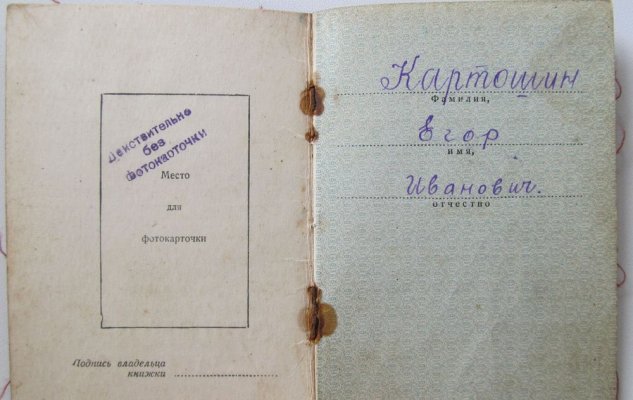 Действительно
без
фотокарточки
Место
для
фотокарточки
Подпись владельца
книжки
Картошин
Фамилия,
Егор
имя,
Иванович.
отчество